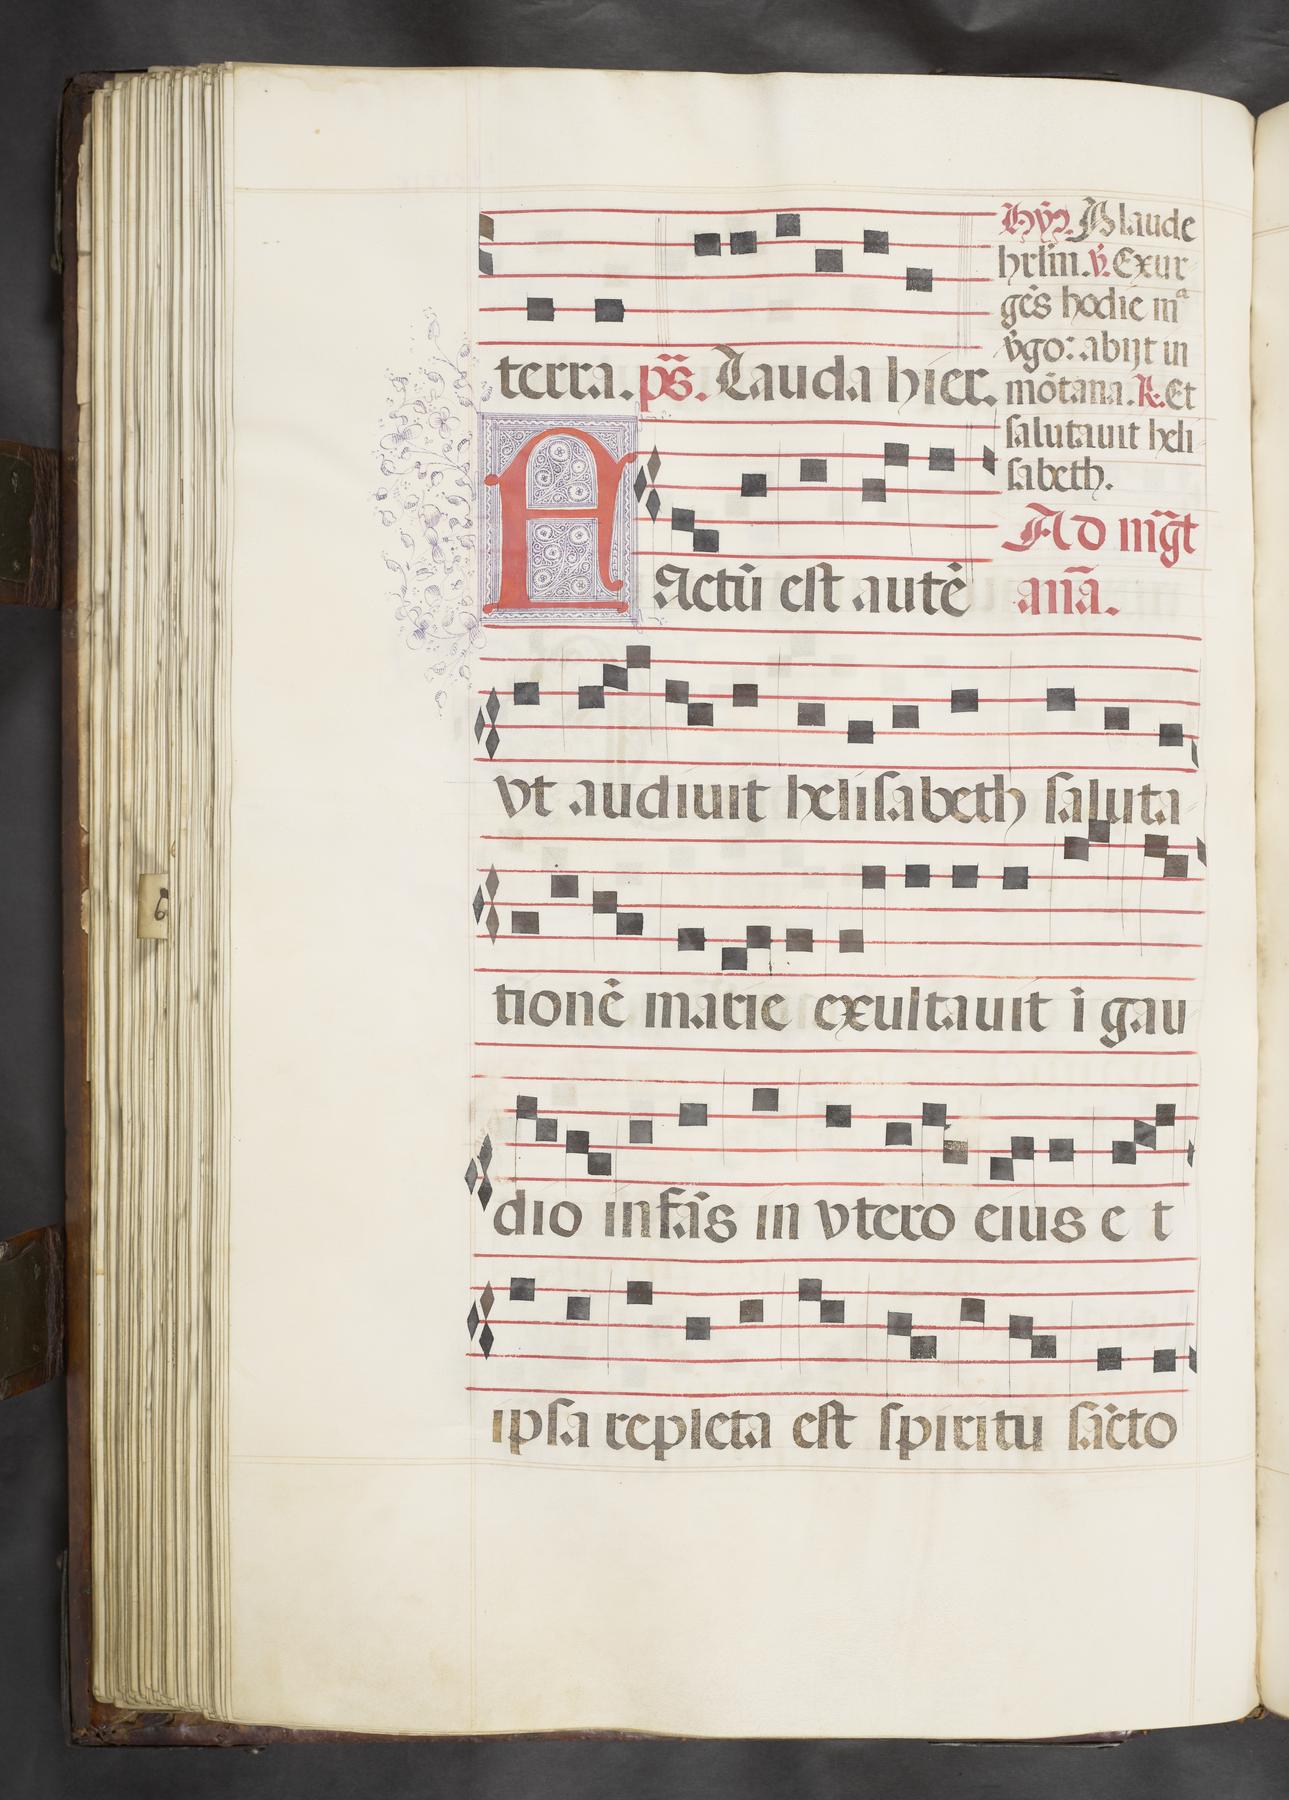 terra. ps̃. Lauda hier.
Hỹ. Plaude
hrl̃m. v̄. Exur
gēs hodie mᵃ
v̄go: abijt in
mōtana. R. Et
salutauit heli
sabeth.
Ad mḡt
añã.
FActū est autē
vt audiuit helisabeth saluta
tionē marie exultauit ī gau
dio infās in vtero eius e t
ipsa repleta est spiritu sācto
6